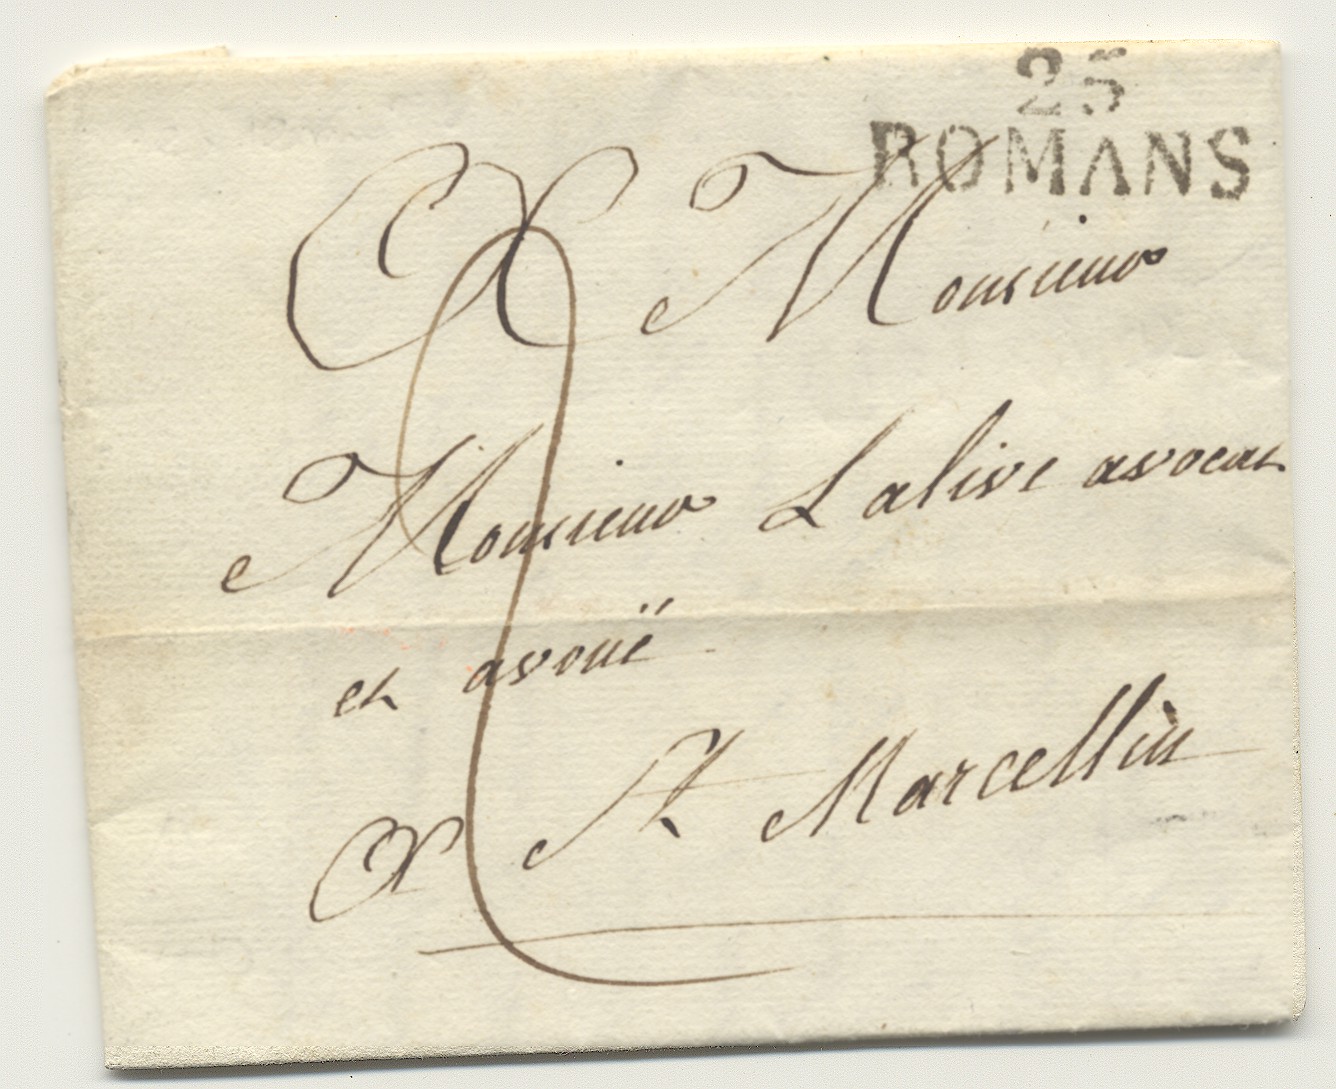 25
ROMANS
A Monsieur
Monsieur Lalive avocat
et avoüé
A St Marcellin
2